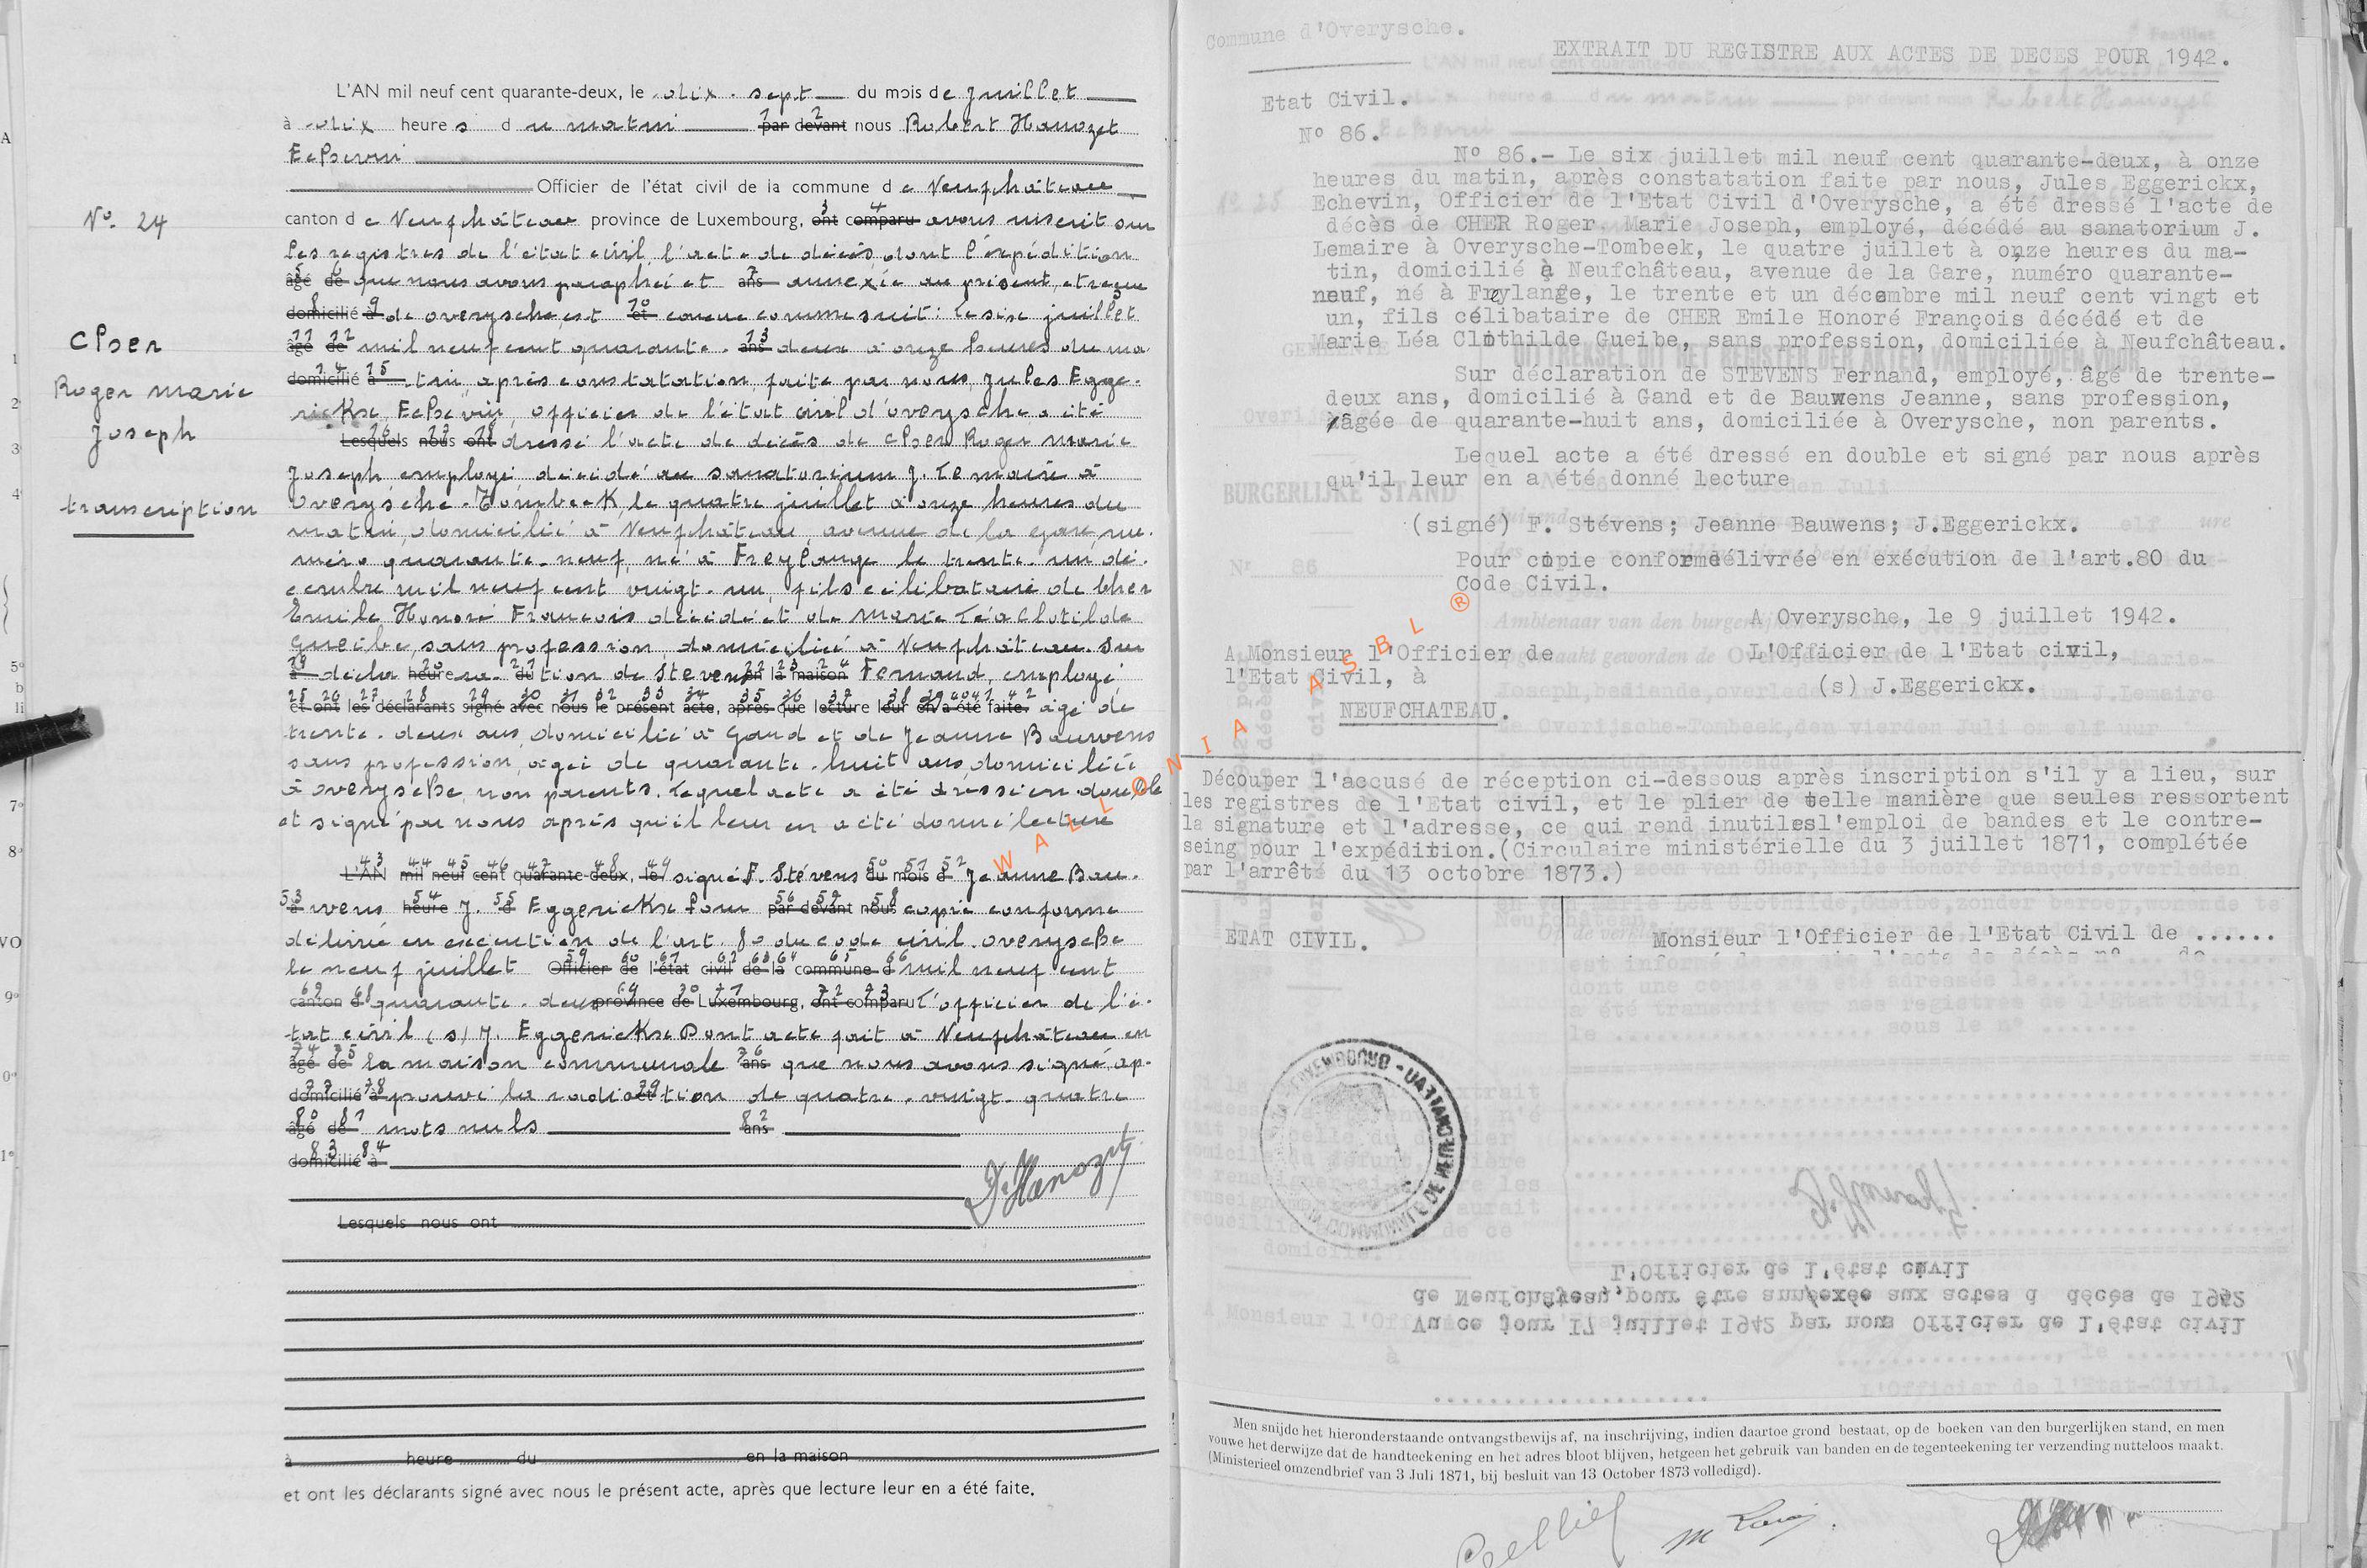 L'AN mil neuf cent quarante-deux, le dix-sept du mois de juillet
à dix heures du matin par devant nous Robert Hanozet
Echevin
Officier de l'état civil de la commune de Neufchâteau
canton de Neufchâteau province de Luxembourg, ont comparu avons inscrit sur
les registres de l'état civil, l'acte de décès, dont l'expédition
âgé de que nous avons paraphée et ans annexée au présent, et reçue
domicilié à de overysche, est et conçue comme suit: Le six juillet
âgé de mil neuf cent quarante- ans deux à onze heures du ma-
domicilié à tin, après constatation, faite par nous, Jules Egge-
rickx, Echevin, officier de l'état civil d'overysche a été
Lesquels nous ont dressé l'acte de décès de Cher Roger Marie
Joseph, employé, décédé au sanatorium J. Lemaire à
Overysche-Tombeek, le quatre juillet à onze heures du
matin, domicilié à Neufchâteau, avenue de la gare, nu-
méro quarante-neuf, né à Freylange le trente-un dé-
cembre mil neuf cent vingt-un, fils célibataire de Cher
Emile Honoré François décédé et de Marie Léa Clotilde
Gueibe, sans profession, domiciliée à Neufchâteau. Sur
à décla heure ra- du tion de Stevens en la maison Fernand, employé
et ont les déclarants signé avec nous le présent acte, après que lecture leur en a été faite. âgé de
trente-deux ans, domicilié à Gand et de Jeanne Bauwens
sans profession, âgée de quarante-huit ans, domiciliée
à overysche, non parents. Lequel acte a été dressé en double
et signé par nous après qu'il leur en a été donné lecture
L'AN mil neuf cent quarante-deux, le signé F. Stévens du mois d Jeanne Bau-
à wens heure J. d Eggerickx Pour par devant nous copie conforme
délivrée en exécution de l'art. 80 du code civil. overysche
le neuf juillet Officier de l'état civil de la commune d mil neuf cent
canton d quarante-deux province de Luxembourg, ont comparu L'officier de l'é-
tat civil (s) J. Eggerickx Dont acte fait à Neufchâteau en
âgé de la maison communale ans que nous avons signé, ap-
domicilié à prouvé la radiation de quatre-vingt-quatre
âgé de mots nuls ans
domicilié à
R. Hanozet
Lesquels nous ont
à heure du en la maison
et ont les déclarants signé avec nous le présent acte, après que lecture leur en a été faite.
No. 24
Cher
Roger Marie
Joseph
transcription
Commune d'Overysche.
EXTRAIT DU REGISTRE AUX ACTES DE DECES POUR 1942.
Etat Civil.
No 86.
No 86.- Le six juillet mil neuf cent quarante-deux, à onze
heures du matin, après constatation faite par nous, Jules Eggerickx,
Echevin, Officier de l'Etat Civil d'Overysche, a été dressé l'acte de
décès de CHER Roger Marie Joseph, employé, décédé au sanatorium J.
Lemaire à Overysche-Tombeek, le quatre juillet à onze heures du ma-
tin, domicilié à Neufchâteau, avenue de la Gare, numéro quarante-
neuf, né à Freylange, le trente et un décembre mil neuf cent vingt et
un, fils célibataire de CHER Emile Honoré François décédé et de
Marie Léa Clothilde Gueibe, sans profession, domiciliée à Neufchâteau.
Sur déclaration de STEVENS Fernand, employé, âgé de trente-
deux ans, domicilié à Gand et de Bauwens Jeanne, sans profession,
âgée de quarante-huit ans, domiciliée à Overysche, non parents.
Lequel acte a été dressé en double et signé par nous après
qu'il leur en a été donné lecture
(signé) F. Stévens; Jeanne Bauwens; J.Eggerickx.
Pour copie conforme délivrée en exécution de l'art.80 du
Code Civil.
A Overysche, le 9 juillet 1942.
A Monsieur l'Officier de
l'Etat Civil, à
NEUFCHATEAU.
L'Officier de l'Etat civil,
(s) J.Eggerickx.
WALLONIA ASBL ®
Découper l'accusé de réception ci-dessous après inscription s'il y a lieu, sur
les registres de l'Etat civil, et le plier de telle manière que seules ressortent
la signature et l'adresse, ce qui rend inutiles l'emploi de bandes et le contre-
seing pour l'expédition.(Circulaire ministérielle du 3 juillet 1871, complétée
par l'arrêté du 13 octobre 1873.)
ETAT CIVIL.
Monsieur l'Officier de l'Etat Civil de ......
L'Officier de l'état civil
de Neufchâteau, pour être annexée aux actes d décès de 1942
Vu ce jour 17 juillet 1942 par nous Officier de l'état civil
Men snijde het hieronderstaande ontvangstbewijs af, na inschrijving, indien daartoe grond bestaat, op de boeken van den burgerlijken stand, en men
vouwe het derwijze dat de handteekening en het adres bloot blijven, hetgeen het gebruik van banden en de tegenteekening ter verzending nutteloos maakt.
(Ministerieel omzendbrief van 3 Juli 1871, bij besluit van 13 October 1873 volledigd).